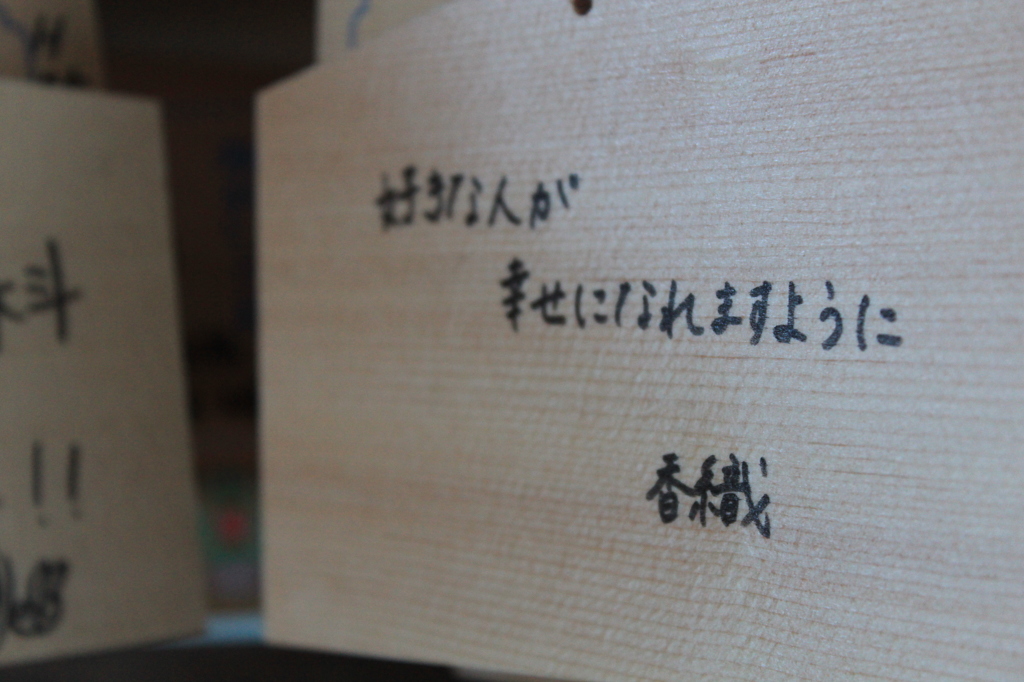 好きな人が
幸せになれますように
香織
斗
!!